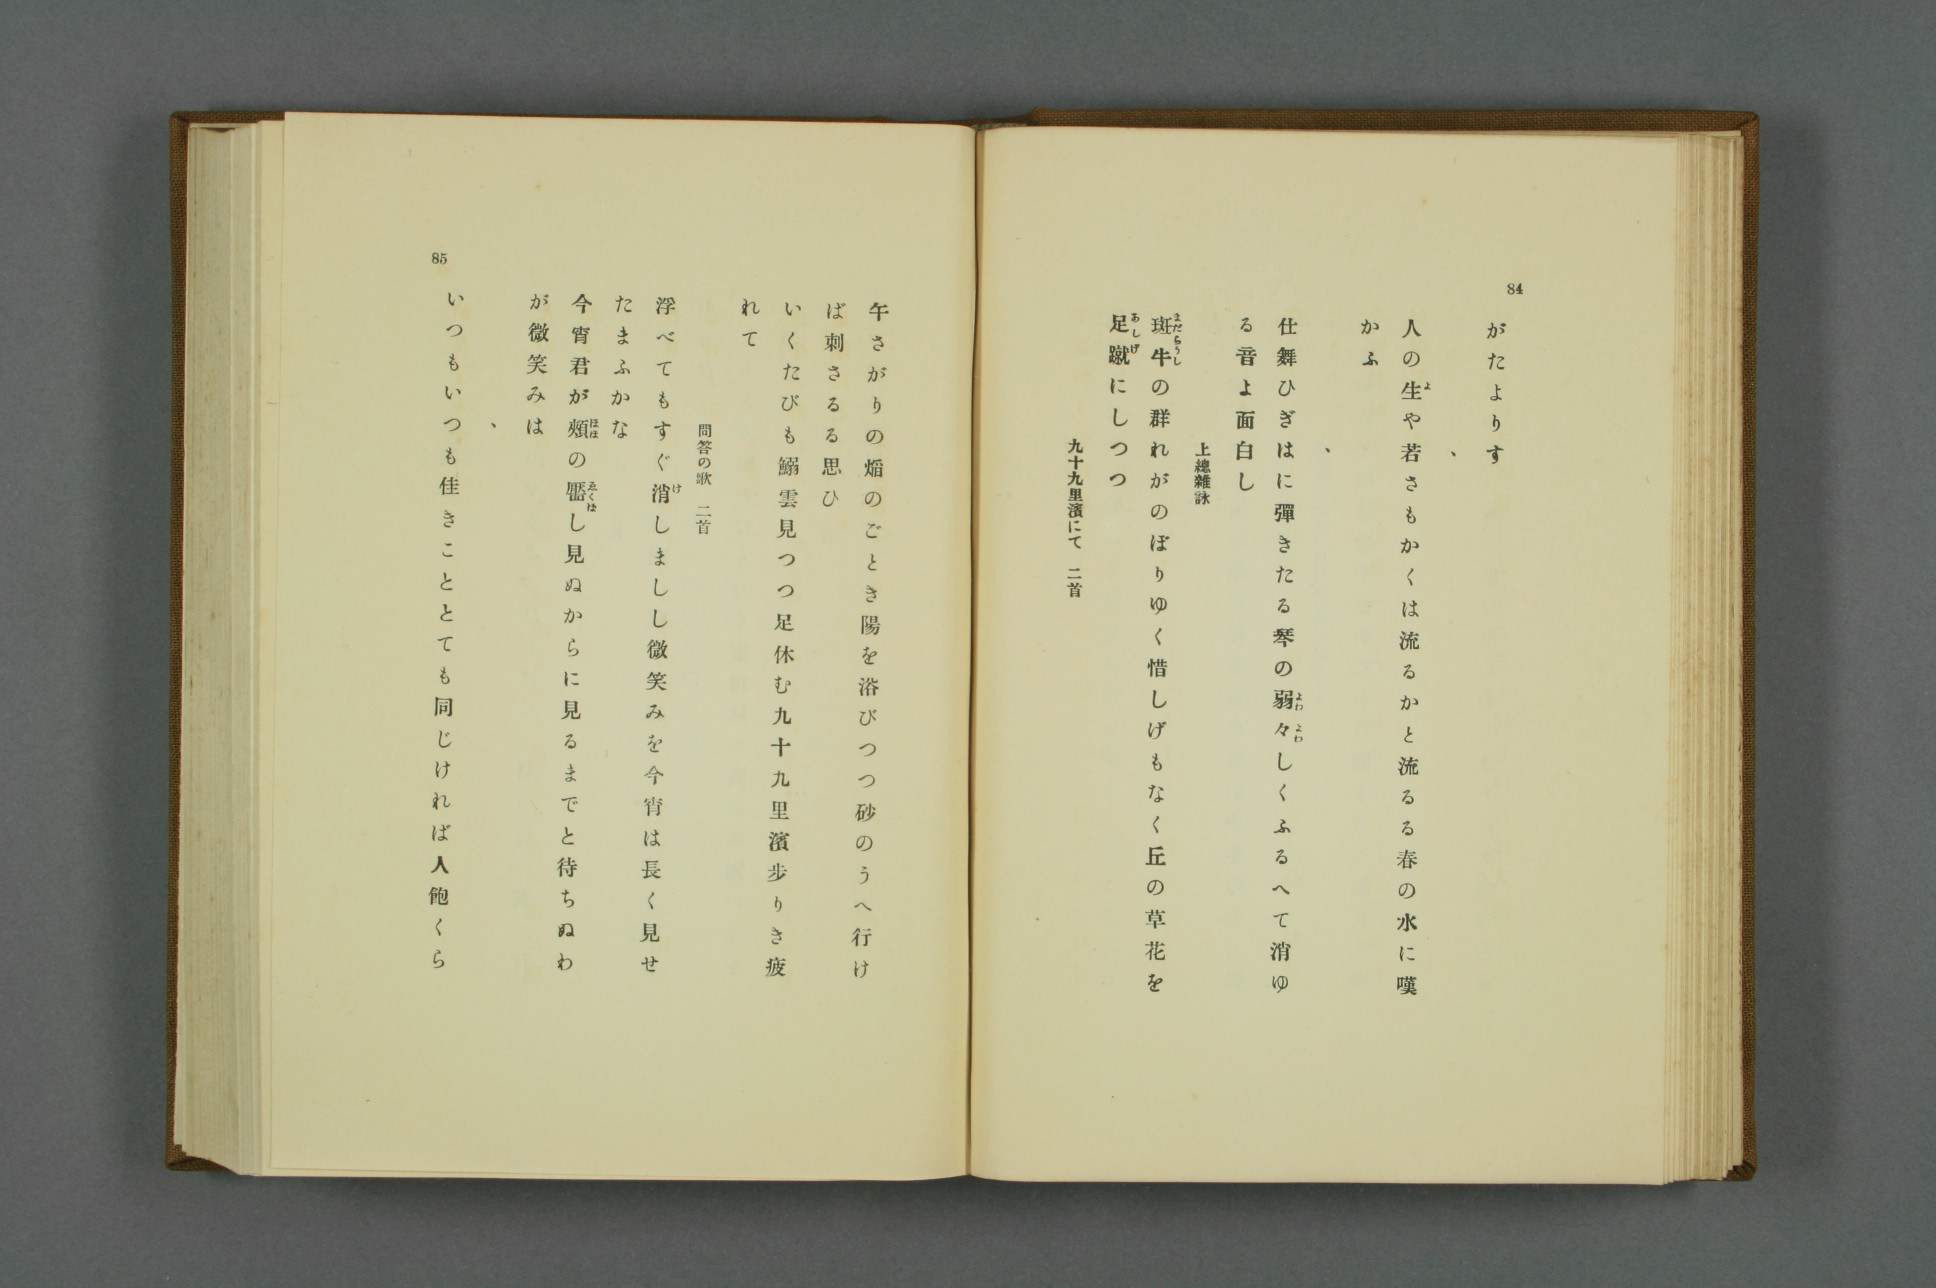 84
がたよりす
、
人の生や若さもかくは流るかと流るる春の水に嘆
よ
かふ
、
仕舞ひぎはに彈きたる琴の弱々しくふるへて消ゆ
よわよわ
る音よ面白し
上總雜詠
斑牛の群れがのぼりゆく惜しげもなく丘の草花を
まだらうし
足蹴にしつつ
あしげ
九十九里濱にて 二首
午さがりの焰のごとき陽を浴びつつ砂のうへ行け
ば刺さるる思ひ
いくたびも鰯雲見つつ足休む九十九里濱歩りき疲
れて
問答の歌 二首
浮べてもすぐ消しましし微笑みを今宵は長く見せ
け
たまふかな
今宵君が頰の靨し見ぬからに見るまでと待ちぬわ
ほほ ゑくぼ
が微笑みは
、
85
いつもいつも佳きこととても同じければ人飽くら